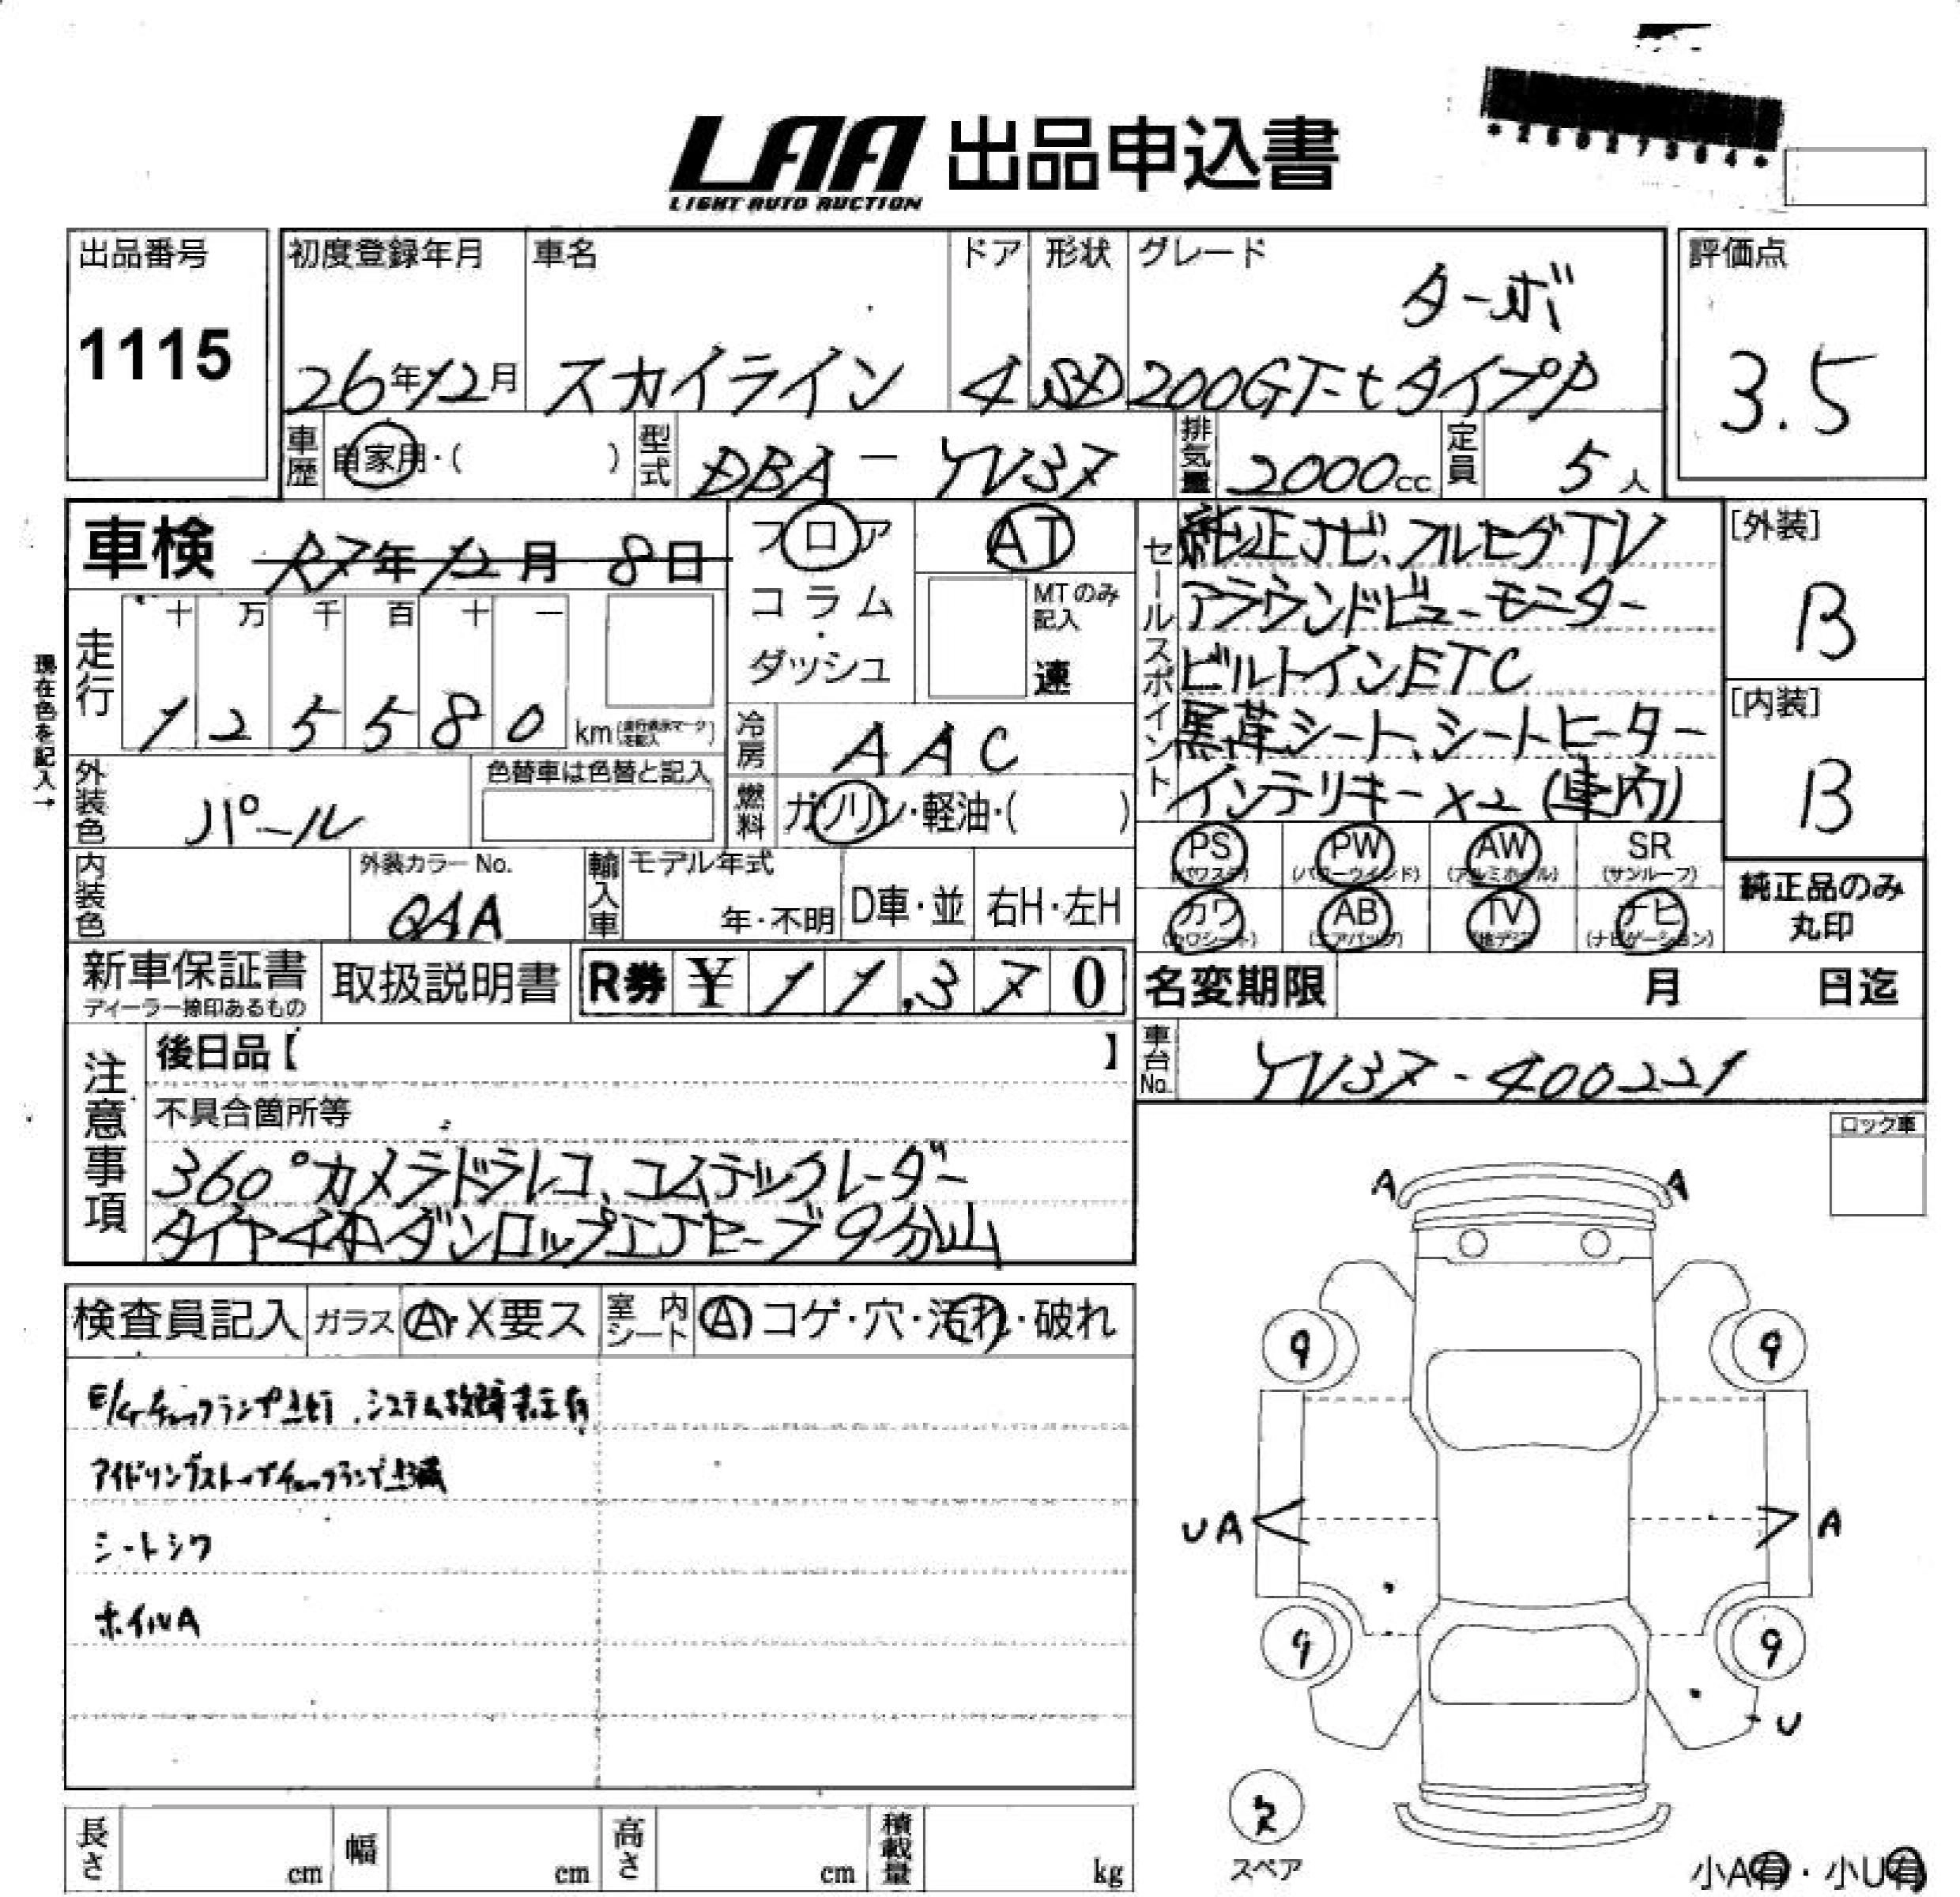 *26027364*
LAA 出品申込書
LIGHT AUTO AUCTION
出品番号
1115
初度登録年月
26年12月
車名
スカイライン
ドア
4
形状
SD
グレード
ターボ
200GT-tタイプP
評価点
3.5
車歴
自家用・( )
型式
DBA-YV37
排気量
2000cc
定員
5人
車検 R7年12月8日
フロア
コラム
・
ダッシュ
AT
MTのみ
記入
速
セールスポイント
純正ナビ、フルセグTV
アラウンドビューモニター
ビルトインETC
黒革シート、シートヒーター
インテリキー×2(車内)
[外装]
B
[内装]
B
現在色を記入→
走行
十万千百十一
125580 km
冷房
AAC
外装色
パール
色替車は色替と記入
燃料
ガソリン・軽油・( )
PS
(パワステ)
PW
(パワーウインド)
AW
(アルミホイル)
SR
(サンルーフ)
カワ
(カワシート)
AB
(エアバッグ)
TV
(地デジ)
ナビ
(ナビゲーション)
純正品のみ
丸印
内装色
外装カラーNo.
QAA
輸入車
モデル年式
年・不明
D車・並
右H・左H
新車保証書
ディーラー捺印あるもの
取扱説明書
R券 ¥ 11,370
名変期限 月 日迄
車台No.
YV37-400221
注意事項
後日品【 】
不具合箇所等
360°カメラドラレコ、コムテックレーダー
タイヤ4本ダンロップエナセーブ9分山
ロック車
検査員記入
ガラス
A・X要ス
室内シート
A コゲ・穴・汚れ・破れ
E/Gチェックランプ点灯、システム故障表示有
アイドリングストップチェックランプ点滅
シートシワ
ホイルA
A
A
9
9
UA
A
9
9
U
欠
スペア
小A有・小U有
長さ cm
幅 cm
高さ cm
積載量 kg